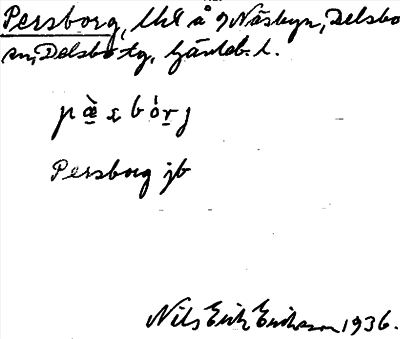 Persborg, lht å Näsbyn, Delsbo
sn, Delsbo tg, Gävleb. l.
pæ̀ʂbórj
Persborg jb
Nils Erik Eriksson 1936.